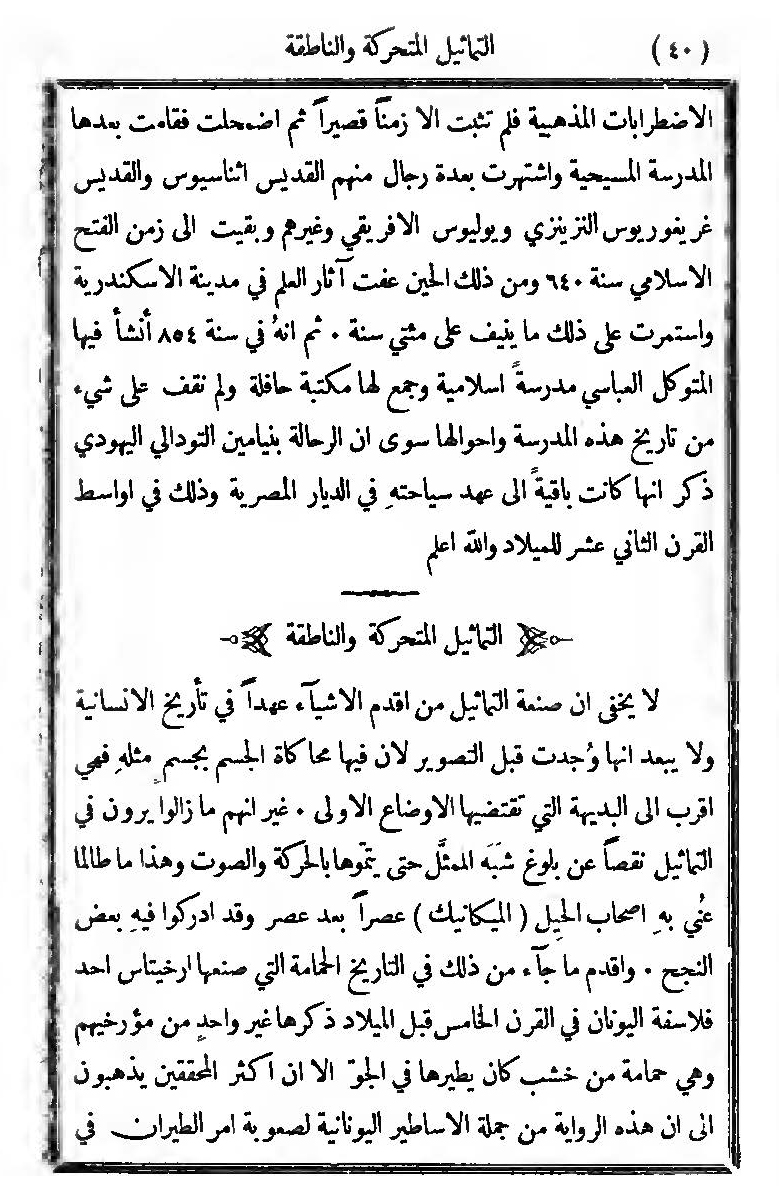 (٤٠) التماثيل المتحركة والناطقة
الاضطرابات المذهبية فلم تثبت الا زمناً قصيراً ثم اضمحلت فقامت بعدها
المدرسة المسيحية واشتهرت بعدة رجال منهم القديس اثناسيوس والقديس
غريغوريوس النزينزي ويوليوس الافريقي وغيرهم وبقيت الى زمن الفتح
الاسلامي سنة ٦٤٠ ومن ذلك الحين عفت آثار العلم في مدينة الاسكندرية
واستمرت على ذلك ما ينيف على مئتي سنة ٠ ثم انهُ في سنة ٨٥٤ أنشأ فيها
المتوكل العباسي مدرسةً اسلامية وجمع لها مكتبة حافلة ولم نقف على شيء
من تاريخ هذه المدرسة واحوالها سوى ان الرحالة بنيامين التودالي اليهودي
ذكر انها كانت باقيةً الى عهد سياحتهِ في الديار المصرية وذلك في اواسط
القرن الثاني عشر للميلاد والله اعلم
التماثيل المتحركة والناطقة
لا يخفى ان صنعة التماثيل من اقدم الاشيآء عهداً في تأريخ الانسانية
ولا يبعد انها وُجدت قبل التصوير لان فيها محاكاة الجسم بجسمٍ مثلهِ فهي
اقرب الى البديهة التي تقتضيها الاوضاع الاولى ٠ غير انهم ما زالوا يرون في
التماثيل نقصاً عن بلوغ شَبَه الممثَّل حتى يتمّوها بالحركة والصوت وهذا ما طالما
عُني بهِ اصحاب الحِيَل (الميكانيك) عصراً بعد عصر وقد ادركوا فيهِ بعض
النجح ٠ واقدم ما جآء من ذلك في التاريخ الحمامة التي صنعها ارخيتاس احد
فلاسفة اليونان في القرن الخامس قبل الميلاد ذكرها غير واحدٍ من مؤرخيهم
وهي حمامة من خشب كان يطيرها في الجوّ الا ان اكثر المحققين يذهبون
الى ان هذه الرواية من جملة الاساطير اليونانية لصعوبة امر الطيران في